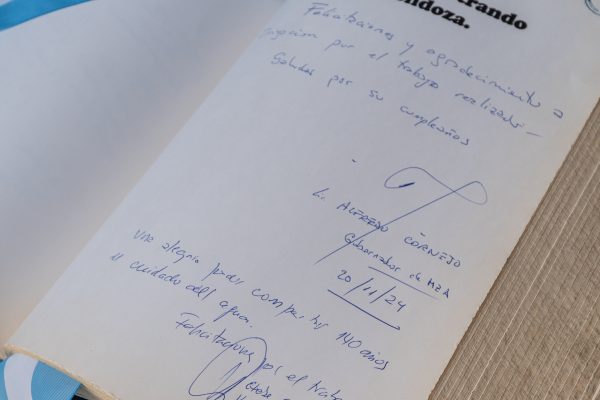 rando
ndoza.
Felicitaciones y agradecimiento a
Irrigación por el trabajo realizado —
Saludos por su cumpleaños
L. ALFREDO CORNEJO
Gobernador de MZA
20/11/24
Una alegría poder compartir 140 años
el cuidado del agua.
Felicitaciones por el trabajo